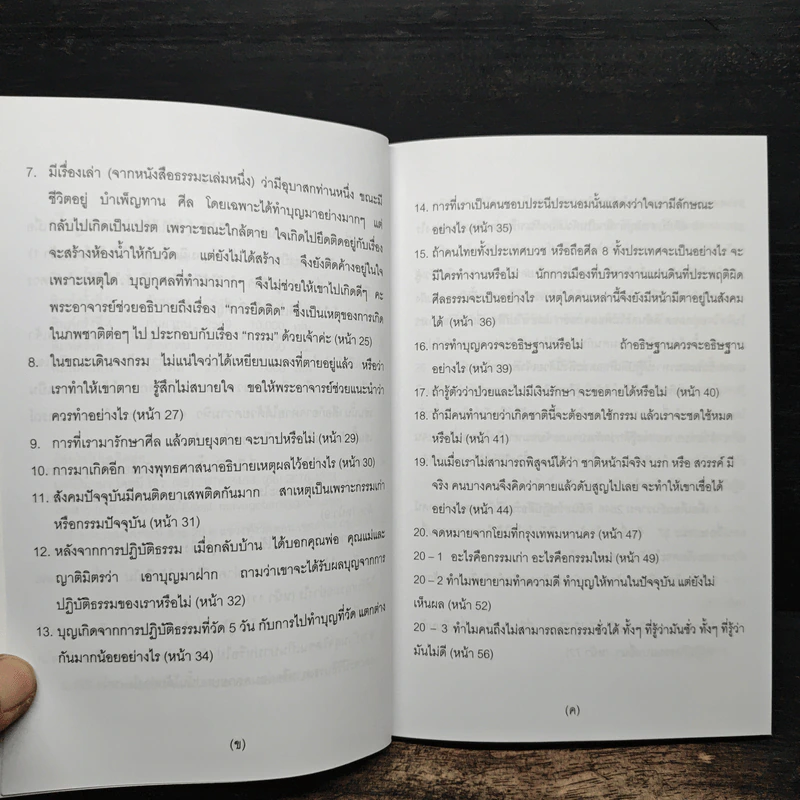 7. มีเรื่องเล่า (จากหนังสือธรรมะเล่มหนึ่ง) ว่ามีอุบาสกท่านหนึ่ง ขณะมี
ชีวิตอยู่ บำเพ็ญทาน ศีล โดยเฉพาะได้ทำบุญมาอย่างมากๆ แต่
กลับไปเกิดเป็นเปรต เพราะขณะใกล้ตาย ใจเกิดไปยึดติดอยู่กับเรื่อง
จะสร้างห้องน้ำให้กับวัด แต่ยังไม่ได้สร้าง จึงยังติดค้างอยู่ในใจ
เพราะเหตุใด บุญกุศลที่ทำมามากๆ จึงไม่ช่วยให้เขาไปเกิดดีๆ คะ
พระอาจารย์ช่วยอธิบายถึงเรื่อง “การยึดติด” ซึ่งเป็นเหตุของการเกิด
ในภพชาติต่อๆ ไป ประกอบกับเรื่อง “กรรม” ด้วยเจ้าค่ะ (หน้า 25)
8. ในขณะเดินจงกรม ไม่แน่ใจว่าได้เหยียบแมลงที่ตายอยู่แล้ว หรือว่า
เราทำให้เขาตาย รู้สึกไม่สบายใจ ขอให้พระอาจารย์ช่วยแนะนำว่า
ควรทำอย่างไร (หน้า 27)
9. การที่เรามารักษาศีล แล้วตบยุงตาย จะบาปหรือไม่ (หน้า 29)
10. การมาเกิดอีก ทางพุทธศาสนาอธิบายเหตุผลไว้อย่างไร (หน้า 30)
11. สังคมปัจจุบันมีคนติดยาเสพติดกันมาก สาเหตุเป็นเพราะกรรมเก่า
หรือกรรมปัจจุบัน (หน้า 31)
12. หลังจากการปฏิบัติธรรม เมื่อกลับบ้าน ได้บอกคุณพ่อ คุณแม่และ
ญาติมิตรว่า เอาบุญมาฝาก ถามว่าเขาจะได้รับผลบุญจากการ
ปฏิบัติธรรมของเราหรือไม่ (หน้า 32)
13. บุญเกิดจากการปฏิบัติธรรมที่วัด 5 วัน กับการไปทำบุญที่วัด แตกต่าง
กันมากน้อยอย่างไร (หน้า 34)
(ข)
14. การที่เราเป็นคนชอบประนีประนอมนั้นแสดงว่าใจเรามีลักษณะ
อย่างไร (หน้า 35)
15. ถ้าคนไทยทั้งประเทศบวช หรือถือศีล 8 ทั้งประเทศจะเป็นอย่างไร จะ
มีใครทำงานหรือไม่ นักการเมืองที่บริหารงานแผ่นดินที่ประพฤติผิด
ศีลธรรมจะเป็นอย่างไร เหตุใดคนเหล่านี้จึงยังมีหน้ามีตาอยู่ในสังคม
ได้ (หน้า 36)
16. การทำบุญควรจะอธิษฐานหรือไม่ ถ้าอธิษฐานควรจะอธิษฐาน
อย่างไร (หน้า 39)
17. ถ้ารู้ตัวว่าป่วยและไม่มีเงินรักษา จะขอตายได้หรือไม่ (หน้า 40)
18. ถ้ามีคนทำนายว่าเกิดชาตินี้จะต้องชดใช้กรรม แล้วเราจะชดใช้หมด
หรือไม่ (หน้า 41)
19. ในเมื่อเราไม่สามารถพิสูจน์ได้ว่า ชาติหน้ามีจริง นรก หรือ สวรรค์ มี
จริง คนบางคนจึงคิดว่าตายแล้วดับสูญไปเลย จะทำให้เขาเชื่อได้
อย่างไร (หน้า 44)
20. จดหมายจากโยมที่กรุงเทพมหานคร (หน้า 47)
20 – 1 อะไรคือกรรมเก่า อะไรคือกรรมใหม่ (หน้า 49)
20 – 2 ทำไมพยายามทำความดี ทำบุญให้ทานในปัจจุบัน แต่ยังไม่
เห็นผล (หน้า 52)
20 – 3 ทำไมคนถึงไม่สามารถละกรรมชั่วได้ ทั้งๆ ที่รู้ว่ามันชั่ว ทั้งๆ ที่รู้ว่า
มันไม่ดี (หน้า 56)
(ค)